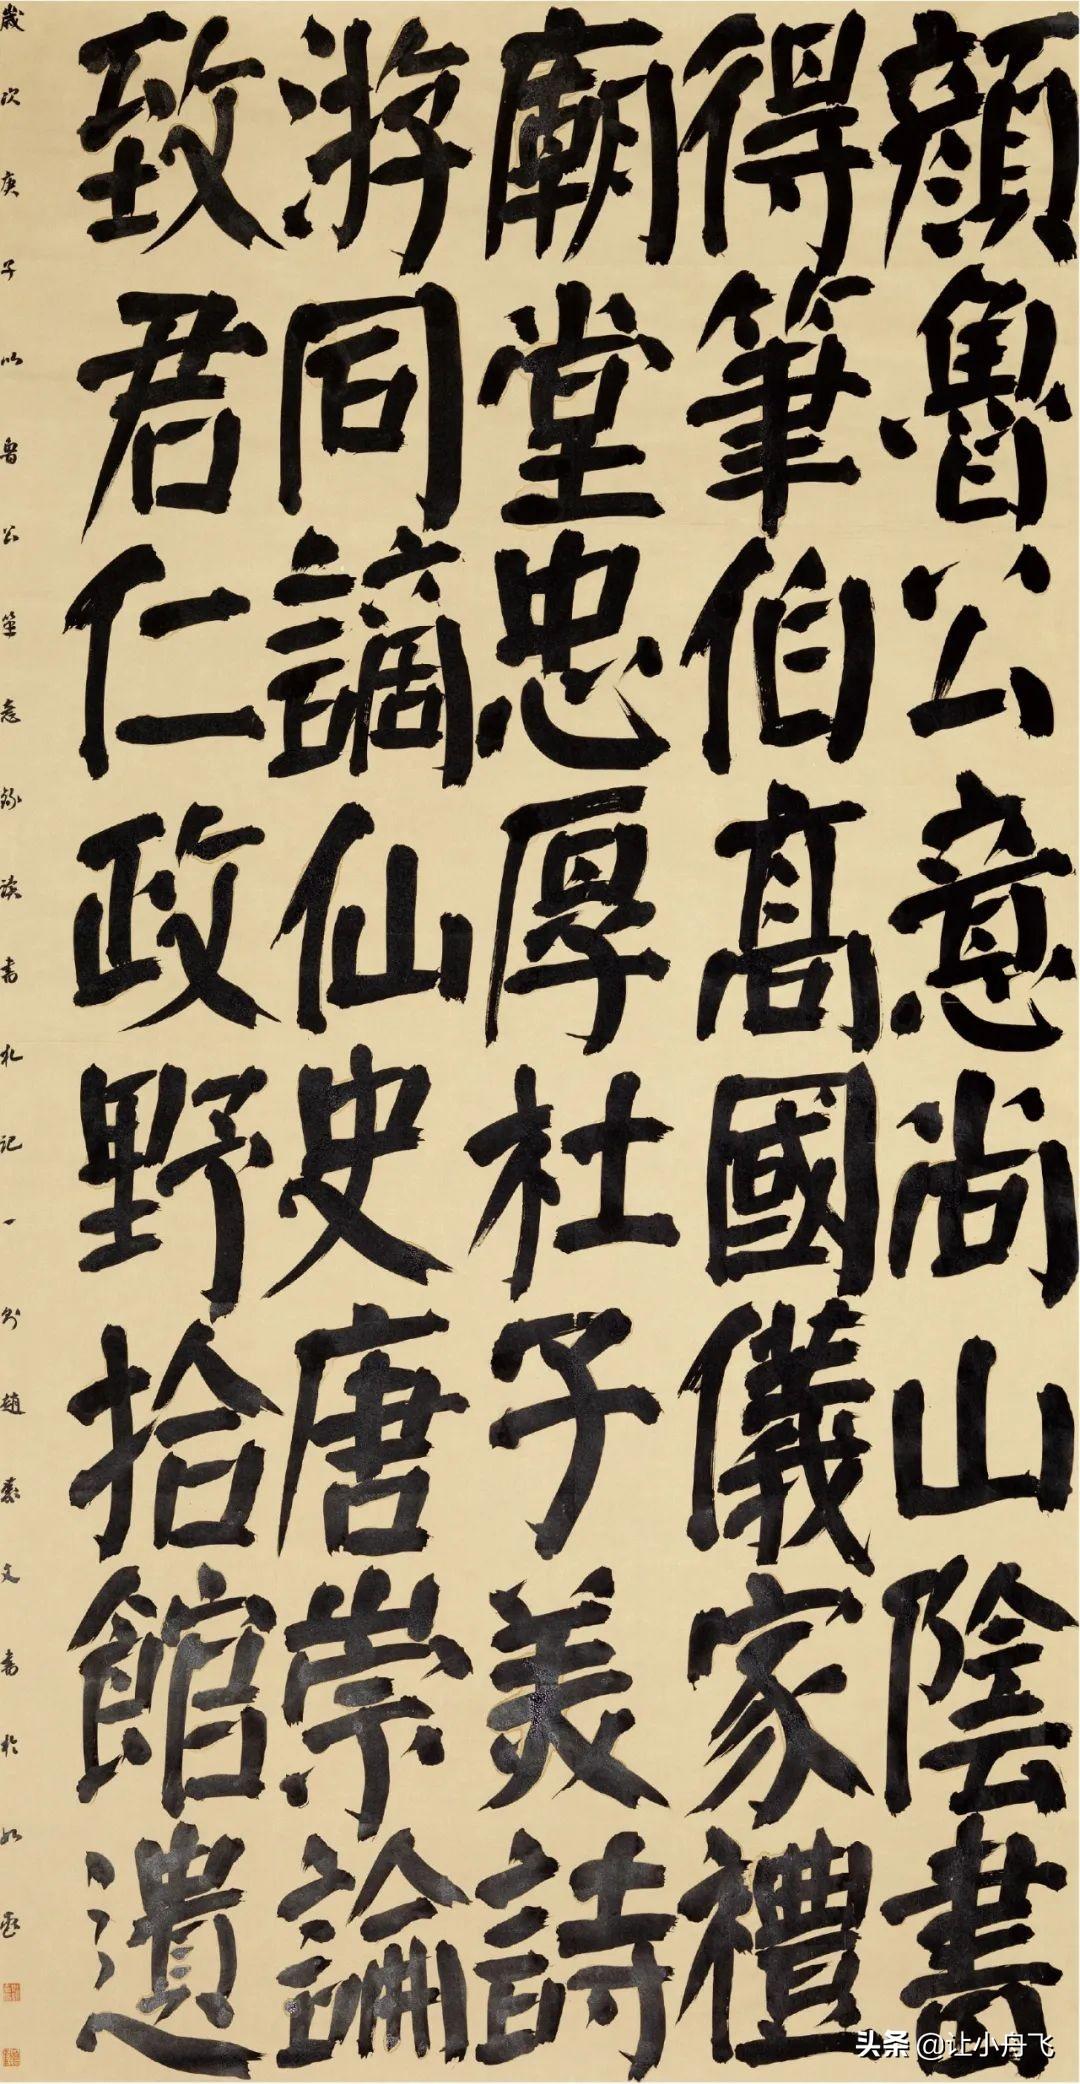 顏魯公意尚山陰書
得筆伯高國儀家禮
廟堂忠厚杜子美詩
游同謫仙史唐崇論
致君仁政野拾館遺
歲次庚子以魯公筆意書札記一則趙文書於
头条 @让小舟飞